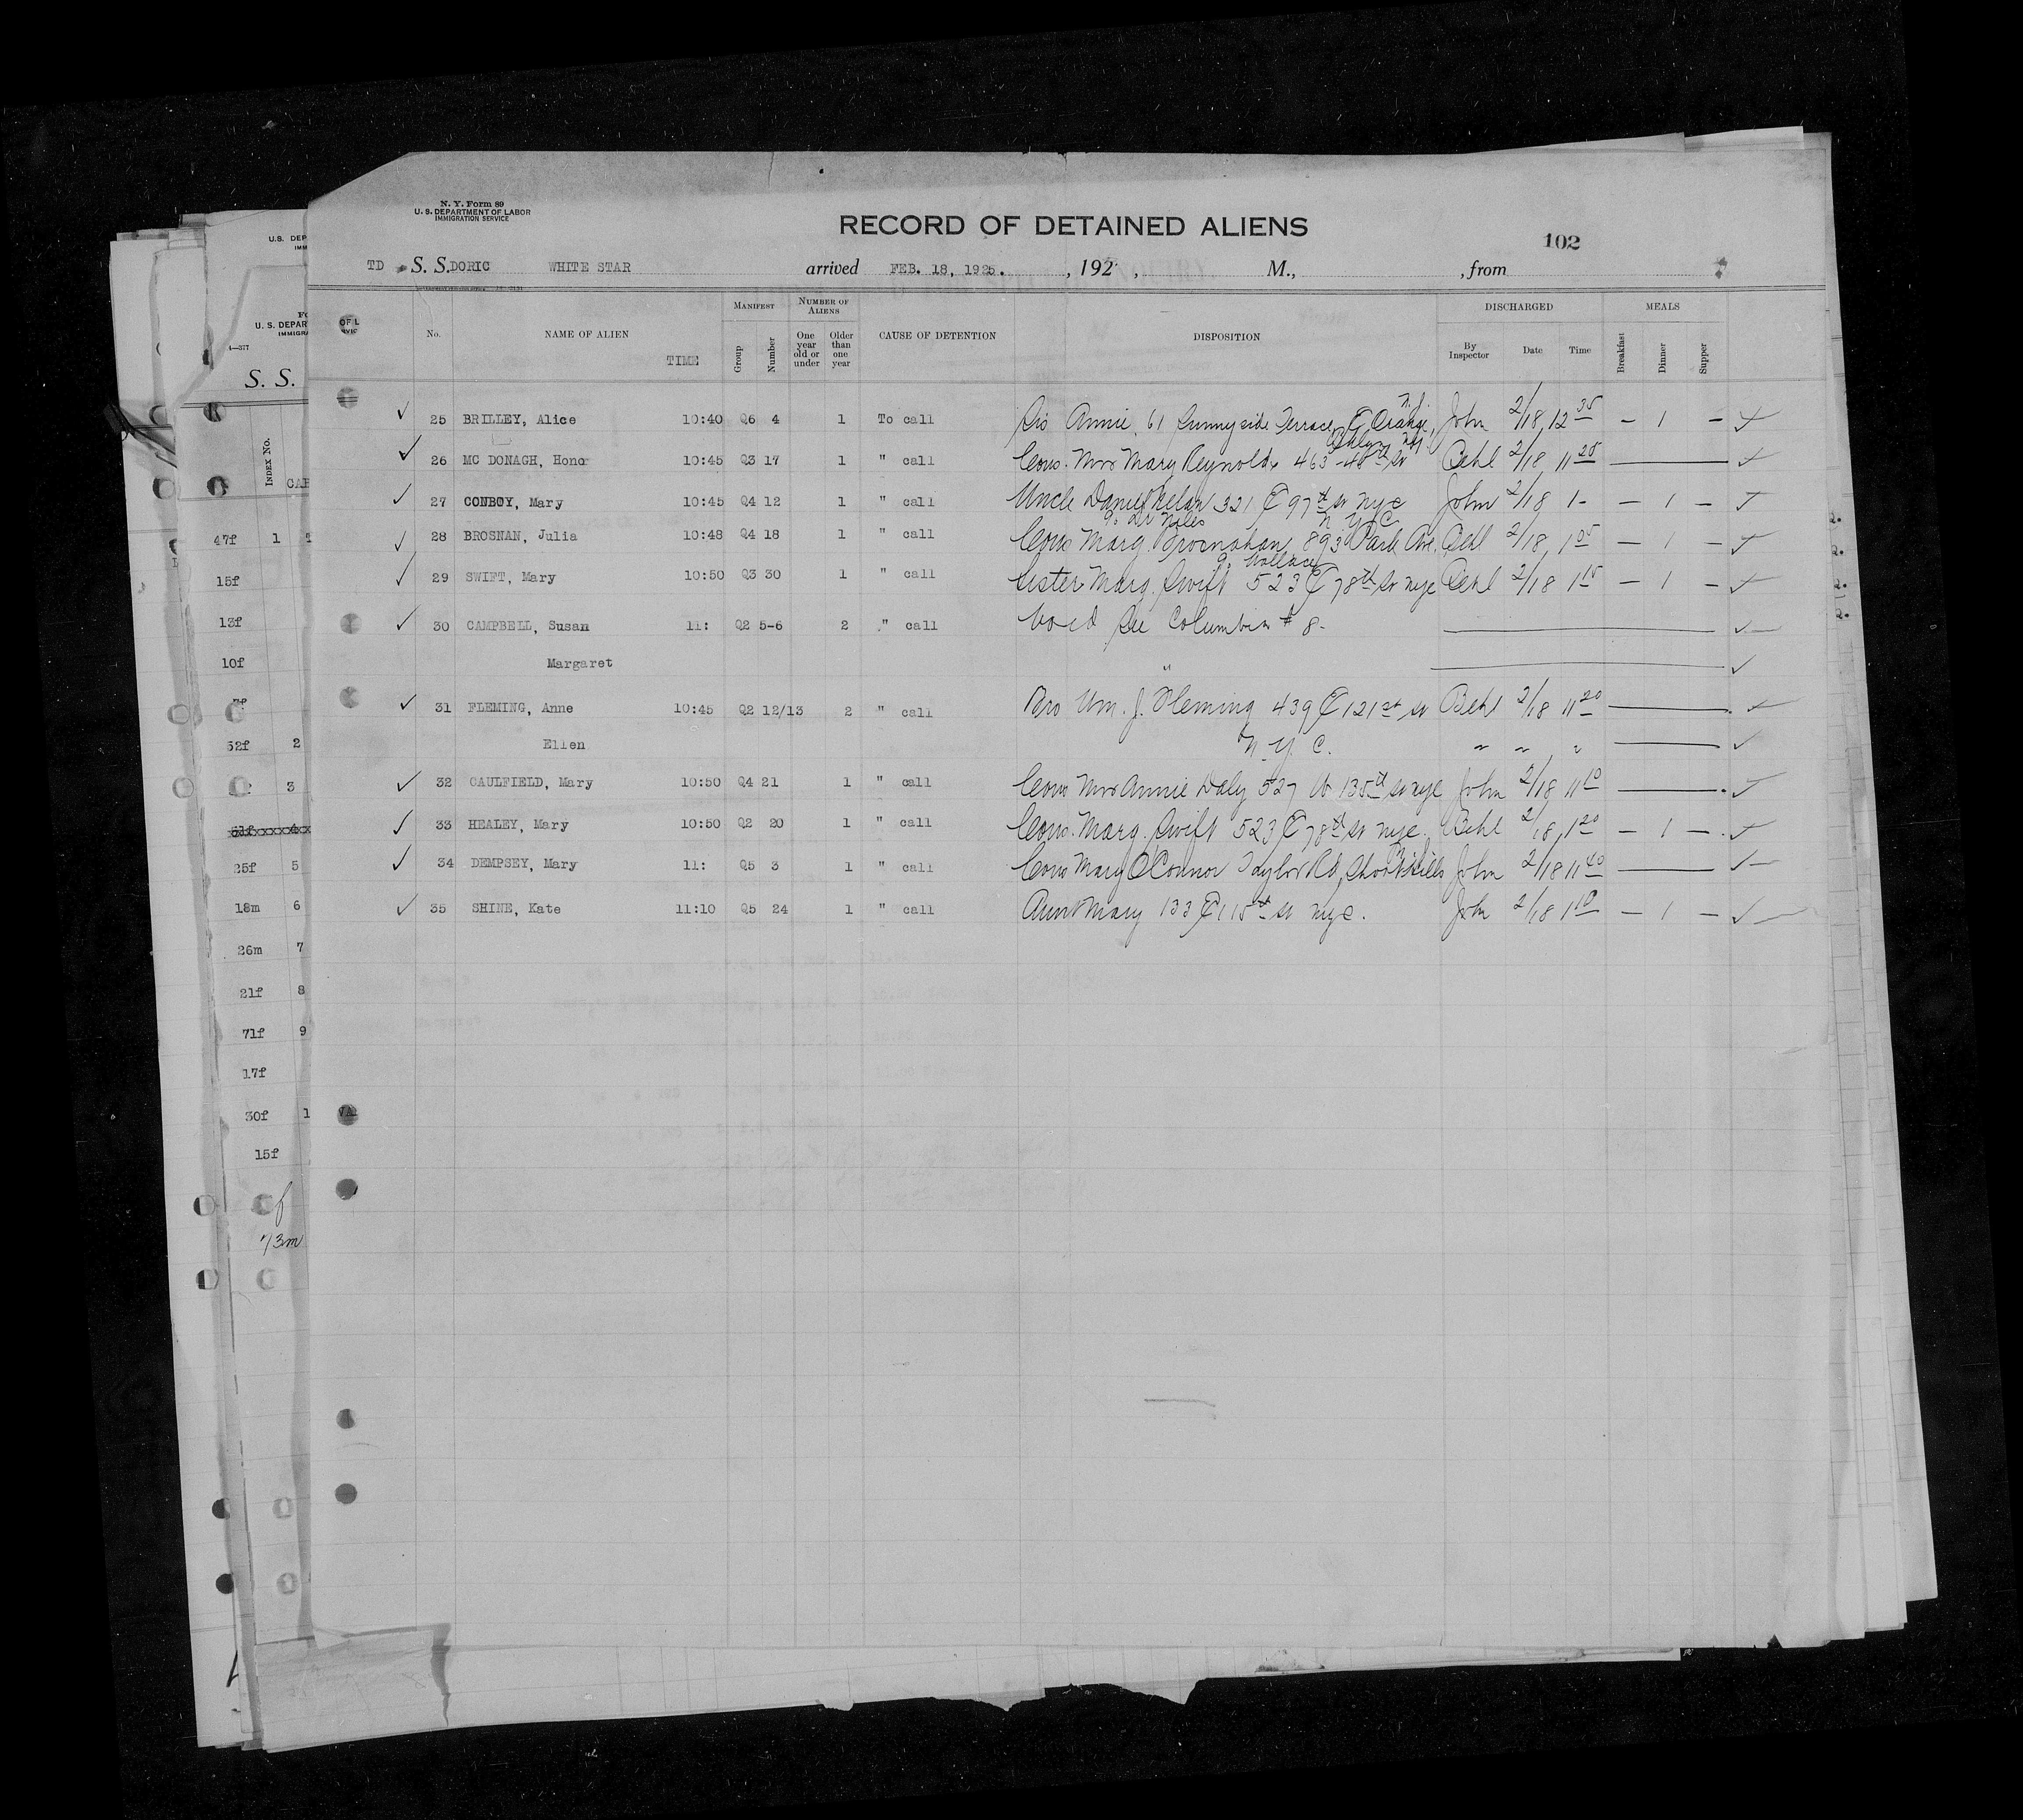 N. Y. Form 89
U. S. DEPARTMENT OF LABOR
IMMIGRATION SERVICE
RECORD OF DETAINED ALIENS
102
TD S. S. DORIC WHITE STAR arrived FEB. 18, 1925. , 192 , M., , from
No. NAME OF ALIEN TIME MANIFEST Group Number NUMBER OF ALIENS One year old or under Older than one year CAUSE OF DETENTION DISPOSITION DISCHARGED By Inspector Date Time MEALS Breakfast Dinner Supper
N.J.
25 BRILLEY, Alice 10:40 Q6 4 1 To call Sis Annie, 61 Sunnyside Terrace, E Orange, John 2/18 12 35 — 1 —
Bklyn NY
26 MC DONAGH, Hono 10:45 Q3 17 1 " call Cous. Mrs Mary Reynolds 463-48th St Behl 2/18 11 25
27 CONBOY, Mary 10:45 Q4 12 1 " call Uncle Daniel 321 E 97th St nyc John 2/18 1- — 1 —
N Y C
28 BROSNAN, Julia 10:48 Q4 18 1 " call Cous Marg. Brosnahan, 893 Park Ave. Behl 2/18 1 05 — 1 —
c/o Wallace
29 SWIFT, Mary 10:50 Q3 30 1 " call Sister Marg. Swift 523 E 78th St nyc Behl 2/18 1 15 — 1 —
30 CAMPBELL, Susan 11: Q2 5-6 2 " call Void See Columbia # 8-
Margaret "
31 FLEMING, Anne 10:45 Q2 12/13 2 " call Bro Wm. J. Fleming 439 E 121st St Behl 2/18 11 20
Ellen N. Y. C. " " "
32 CAULFIELD, Mary 10:50 Q4 21 1 " call Cous Mrs Annie Daly 527 W 135th St nyc John 2/18 11 10
33 HEALEY, Mary 10:50 Q2 20 1 " call Cous. Marg. Swift 523 E 78th St nyc. Behl 2/18 1 20 — 1 —
N.J.
34 DEMPSEY, Mary 11: Q5 3 1 " call Cous Mary O'Connor Taylor Rd, Short Hills John 2/18 11 40
35 SHINE, Kate 11:10 Q5 24 1 " call Aunt Mary 133 E 115th St nyc. John 2/18 1 10 — 1 —
U.S. DEP
IMM
U. S. DEPAR
IMMIGRA
S. S.
INDEX No.
47f 1
15f
13f
10f
52f 2
3
25f 5
18m 6
26m 7
21f 8
71f 9
17f
30f 1
15f
f
73m